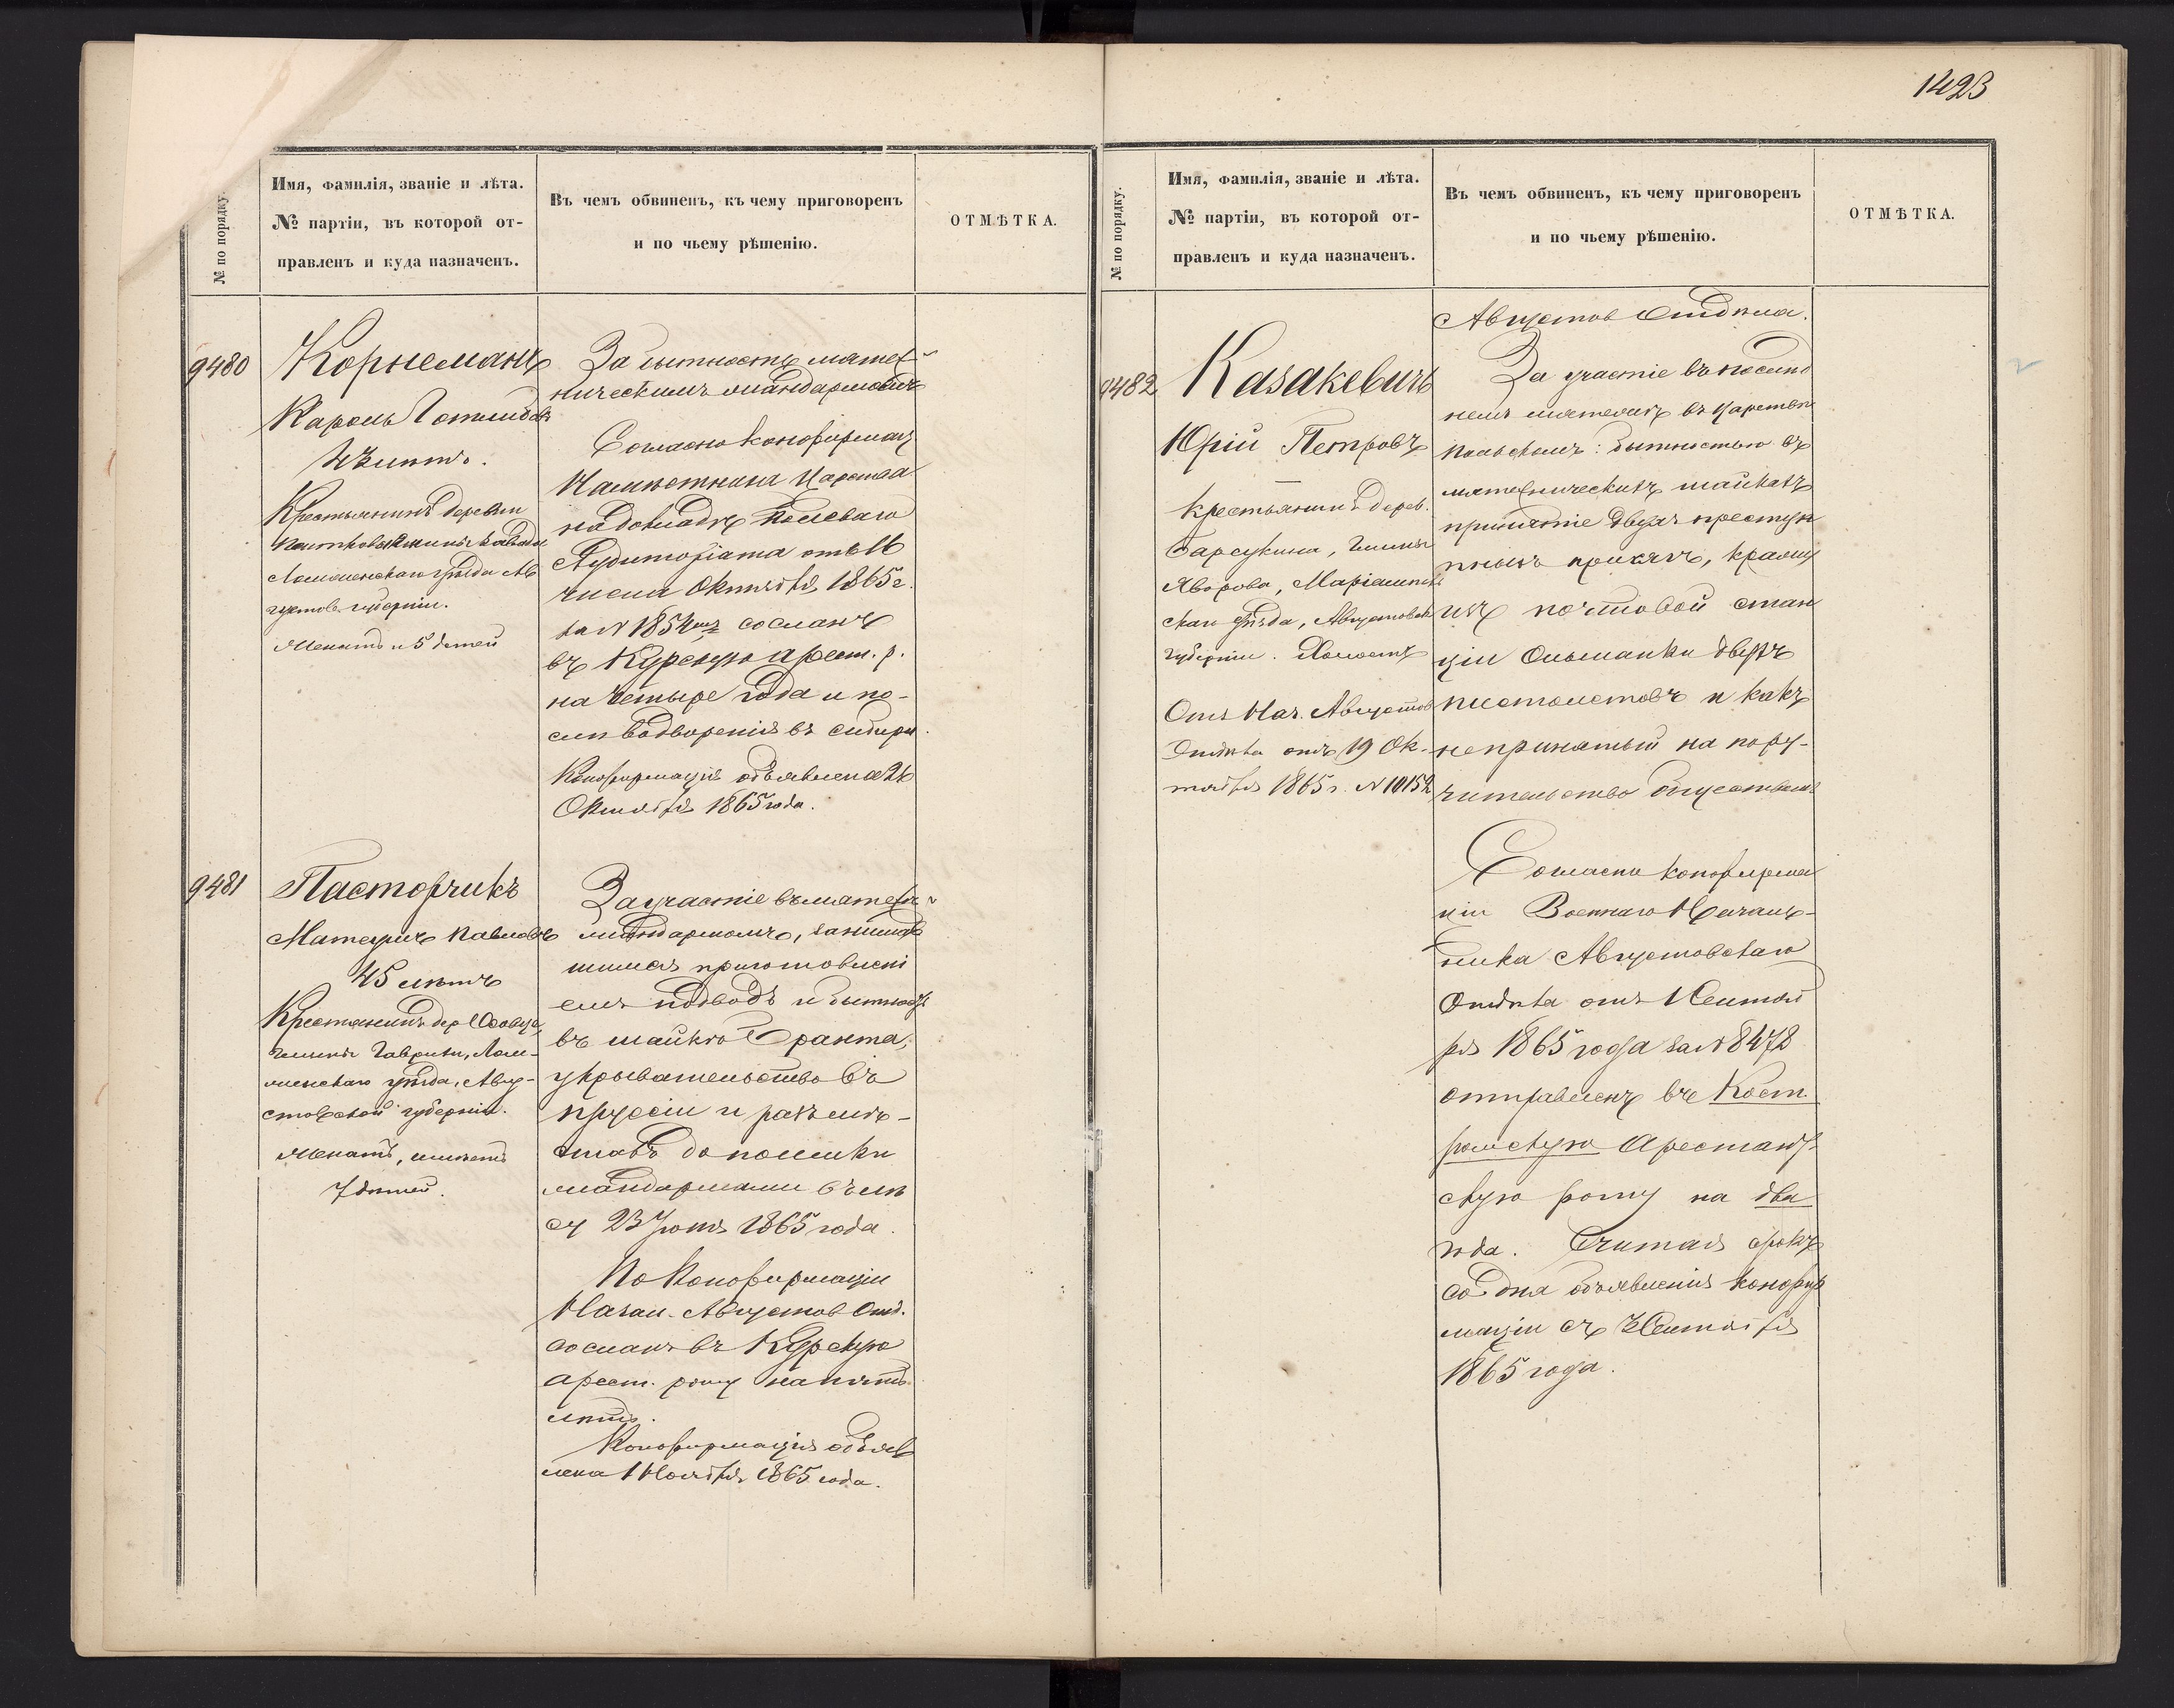 1423
№ по порядку.
Имя, фамилія, званіе и лѣта.
№ партіи, въ которой от-
правленъ и куда назначенъ.
Въ чемъ обвиненъ, къ чему приговоренъ
и по чьему рѣшенію.
ОТМѢТКА.
9480
Корнеманъ
Кароль
Крестьянинъ деревни
густов губерніи.
Женатъ и 5 детей
За бытность мятеж-
ническимъ жандармомъ
Согласно конофирмац
Намѣстника Царства
на докладѣ Полеваго
Аудиторіата отъ 16
числа Октября 1865 г.
за N 1854 сосланъ
въ Курскую арест. р.
на четыре года и по-
слѣ водворенія въ сибири.
Конофирмація объявлена 26
Октября 1865 года.
9481
Пасторчикъ
Матеушъ Павловъ
45 лѣтъ
Крестянинъ дер
гмины Лом-
жинскаго уѣзда, Авгу-
стовской губерніи.
Женатъ, имѣетъ
7 дѣтей.
За участіе въ мятежѣ
жандармомъ, занимав
шимся приготовлені
емъ подводъ и бытность
въ шайкѣ Бранта,
укрывательство въ
пруссіи и
до поимки
жандармами въ мѣ
сц 23 Іюня 1865 года.
По Конофирмаціи
Начал. Августов Отд.
сосланъ въ Курскую
арест. роту на пять
лѣтъ.
Конофирмація объяв
лена 1 Ноября 1865 года.
№ по порядку.
Имя, фамилія, званіе и лѣта.
№ партіи, въ которой от-
правленъ и куда назначенъ.
Въ чемъ обвиненъ, къ чему приговоренъ
и по чьему рѣшенію.
ОТМѢТКА.
9482
Казакевичъ
Юрій Петровъ
крестьянинъ дерев.
Барсукина, Гмины
Яворова, Маріампольс
скаго уѣзда, Августовской
губерніи. Холостъ
Отъ Нач. Августов
Отдѣла отъ 19 Ок-
тября 1865 г. N 10152
Августов Отдѣла.
За участіе въ послѣд
немъ мятежѣ въ Царствѣ
Польскомъ: бытностью въ
мятежническихъ шайкахъ
принятіе двухъ преступ
ныхъ присягъ, кражу
изъ почтовой стан
ціи Ольшанки двухъ
пистолетовъ и какъ
непринятый на пору-
чительство обществомъ
Согласно конофирма
ціи Военнаго Началь-
ника Августовскаго
Отдѣла отъ 1 Сентяб
ря 1865 года за N 8478
отправленъ въ Кост
ромскую Арестант
скую роту на два
года. Считая срокъ
со дня объявленія конофир
маціи съ Сентября
1865 года.